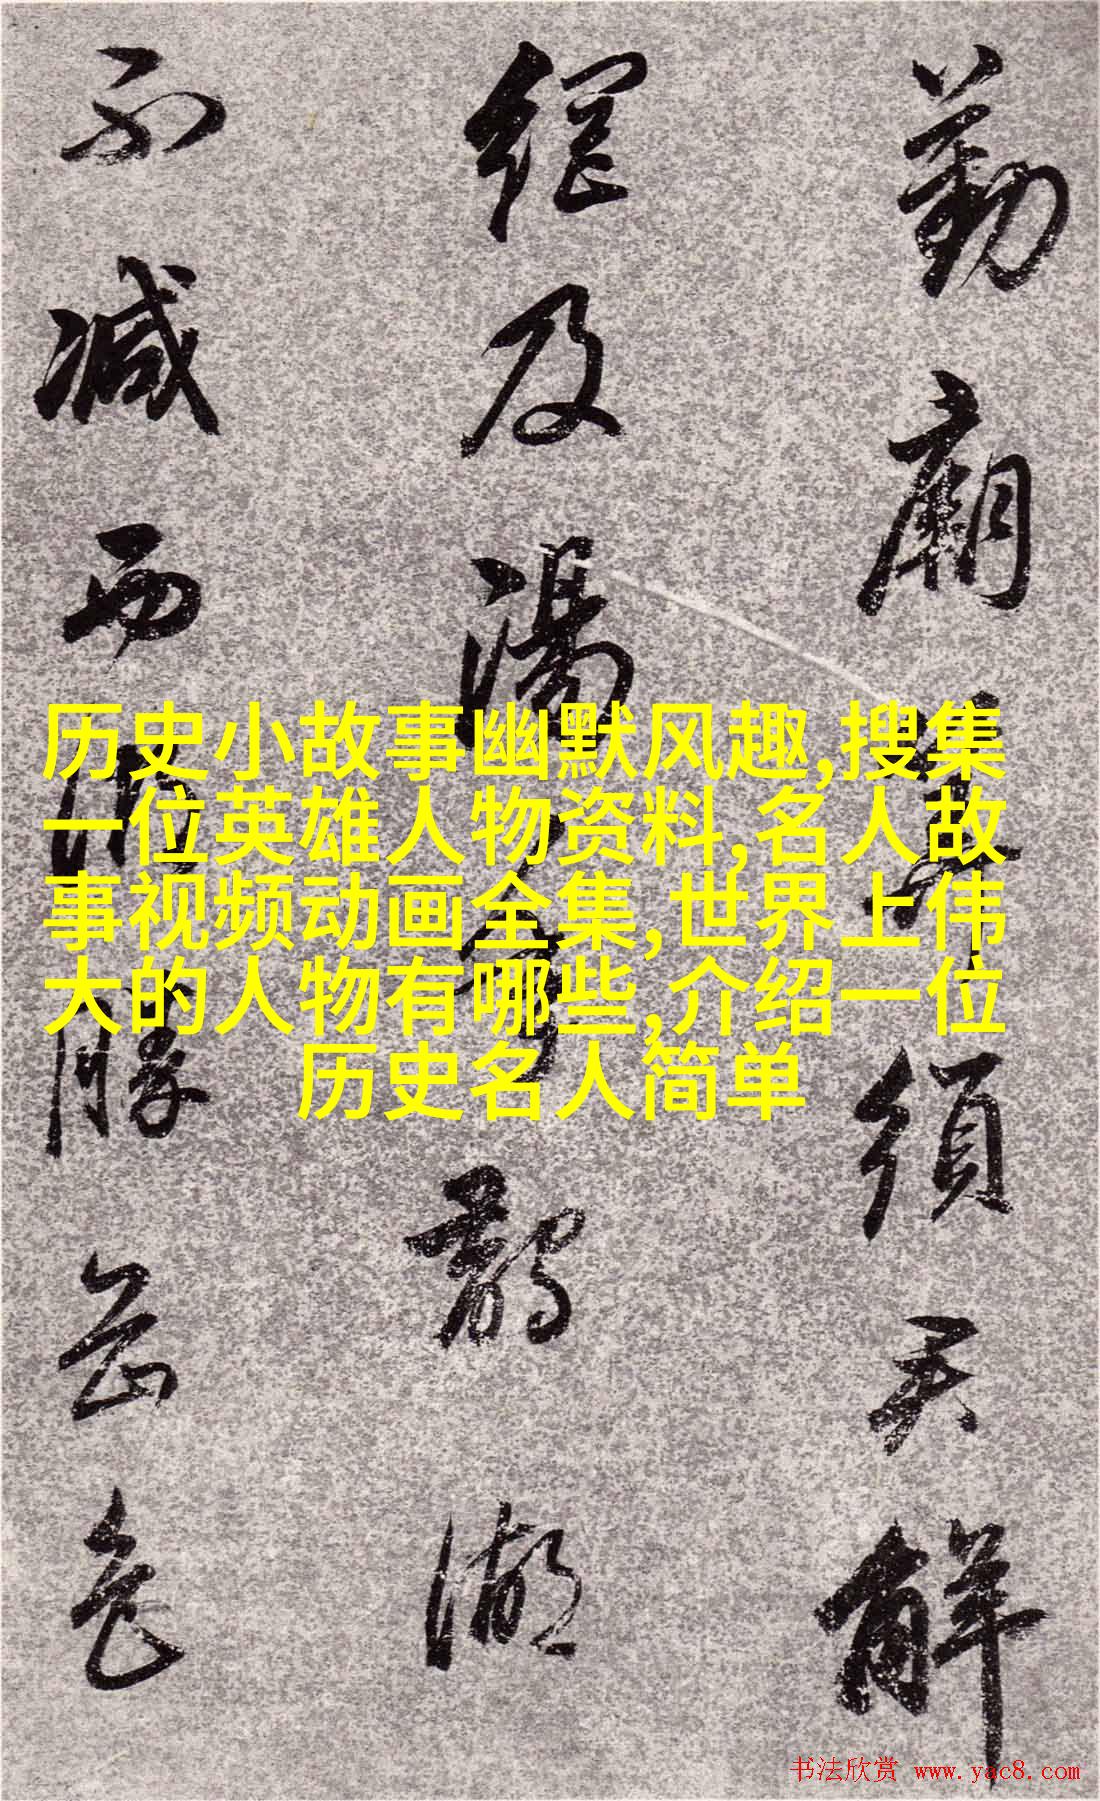 勤廟須解
及湖
不減西湖勝
历史小故事幽默风趣,搜集
一位英雄人物资料,名人故
事视频动画全集,世界上伟
大的人物有哪些,介绍一位
历史名人简单
书法欣赏 www.yac8.com